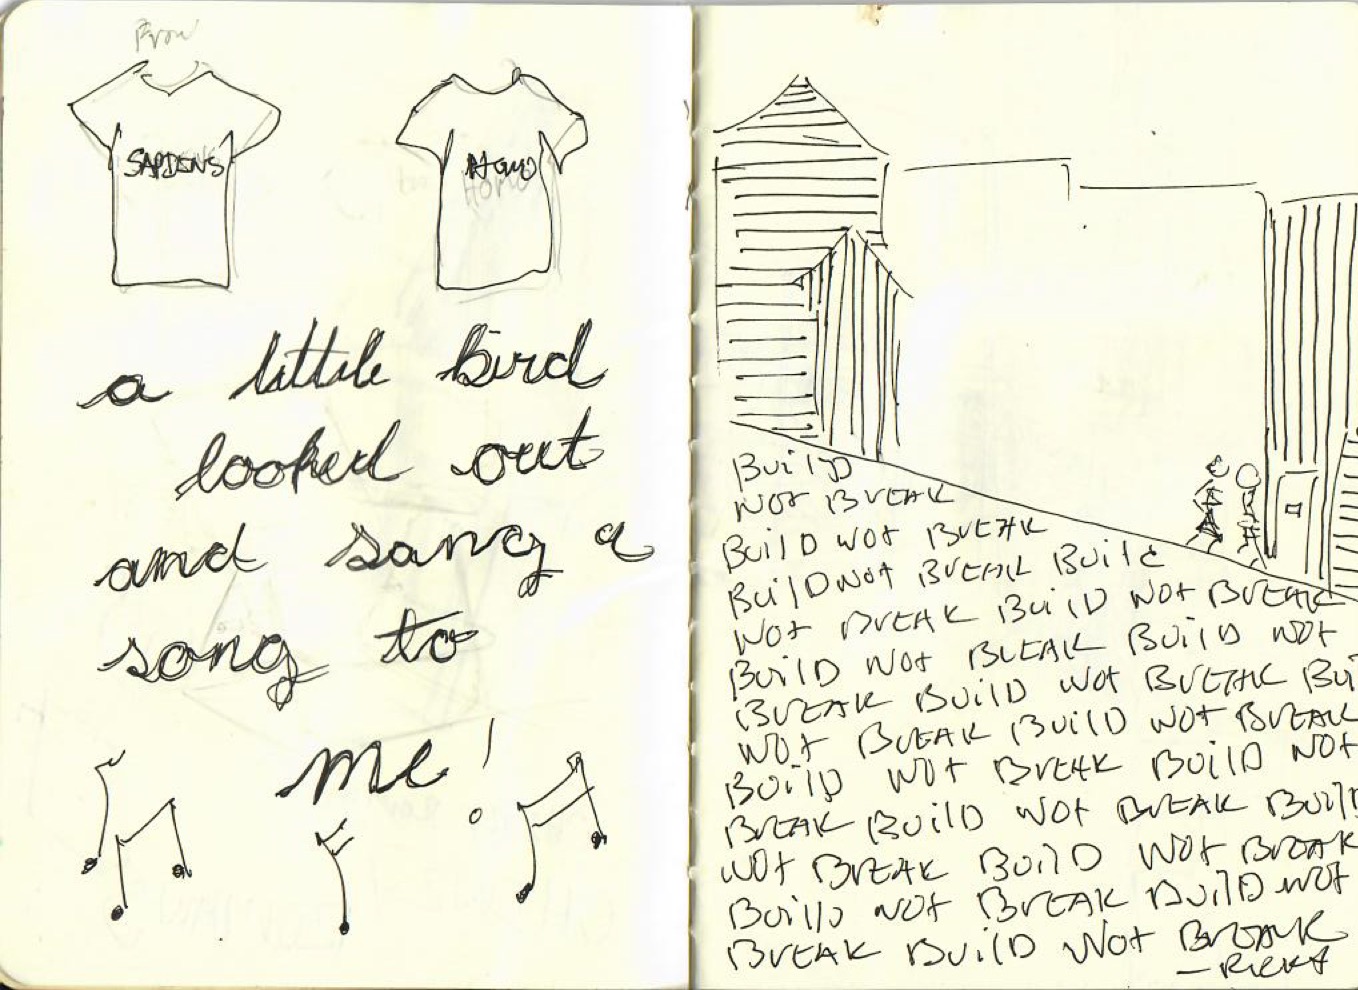 SAPIENS
HOMO
HOMO
a little bird
looked out
and sang a
song to
me!
BuilD
NOT BREAK
BuilD NOT BREAK
BuilD NOT BREAK Build
NOT BREAK BuilD NOT BREAK
BuilD NOT BREAK BuilD NOT
BREAK BuilD NOT BREAK Bui
NOT BREAK BuilD NOT BREAK
BuilD NOT BREAK BuilD NOT
BREAK BuilD NOT BREAK Build
NOT BREAK BuilD NOT BREAK
BuilD NOT BREAK BuilD NOT
BREAK BuilD NOT BREAK